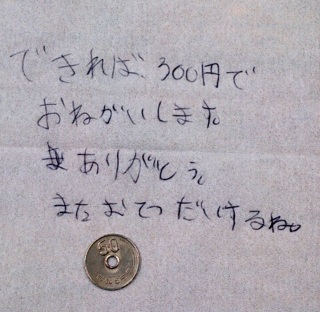 できれば、300円で
おねがいします。
ありがとう。
またおてつだいするね。
50